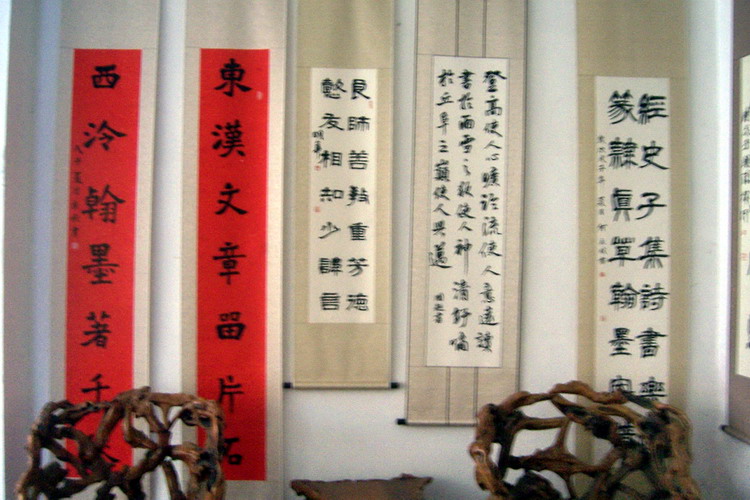 經史子集詩書樂
篆隸眞草翰墨
登高使人心曠臨流使人意遠讀
書於雨雪之夜使人神清舒嘯
於丘阜之巔使人興邁
良師善教重芳德
友相知少諱言
東漢文章留片石
西泠翰墨著千